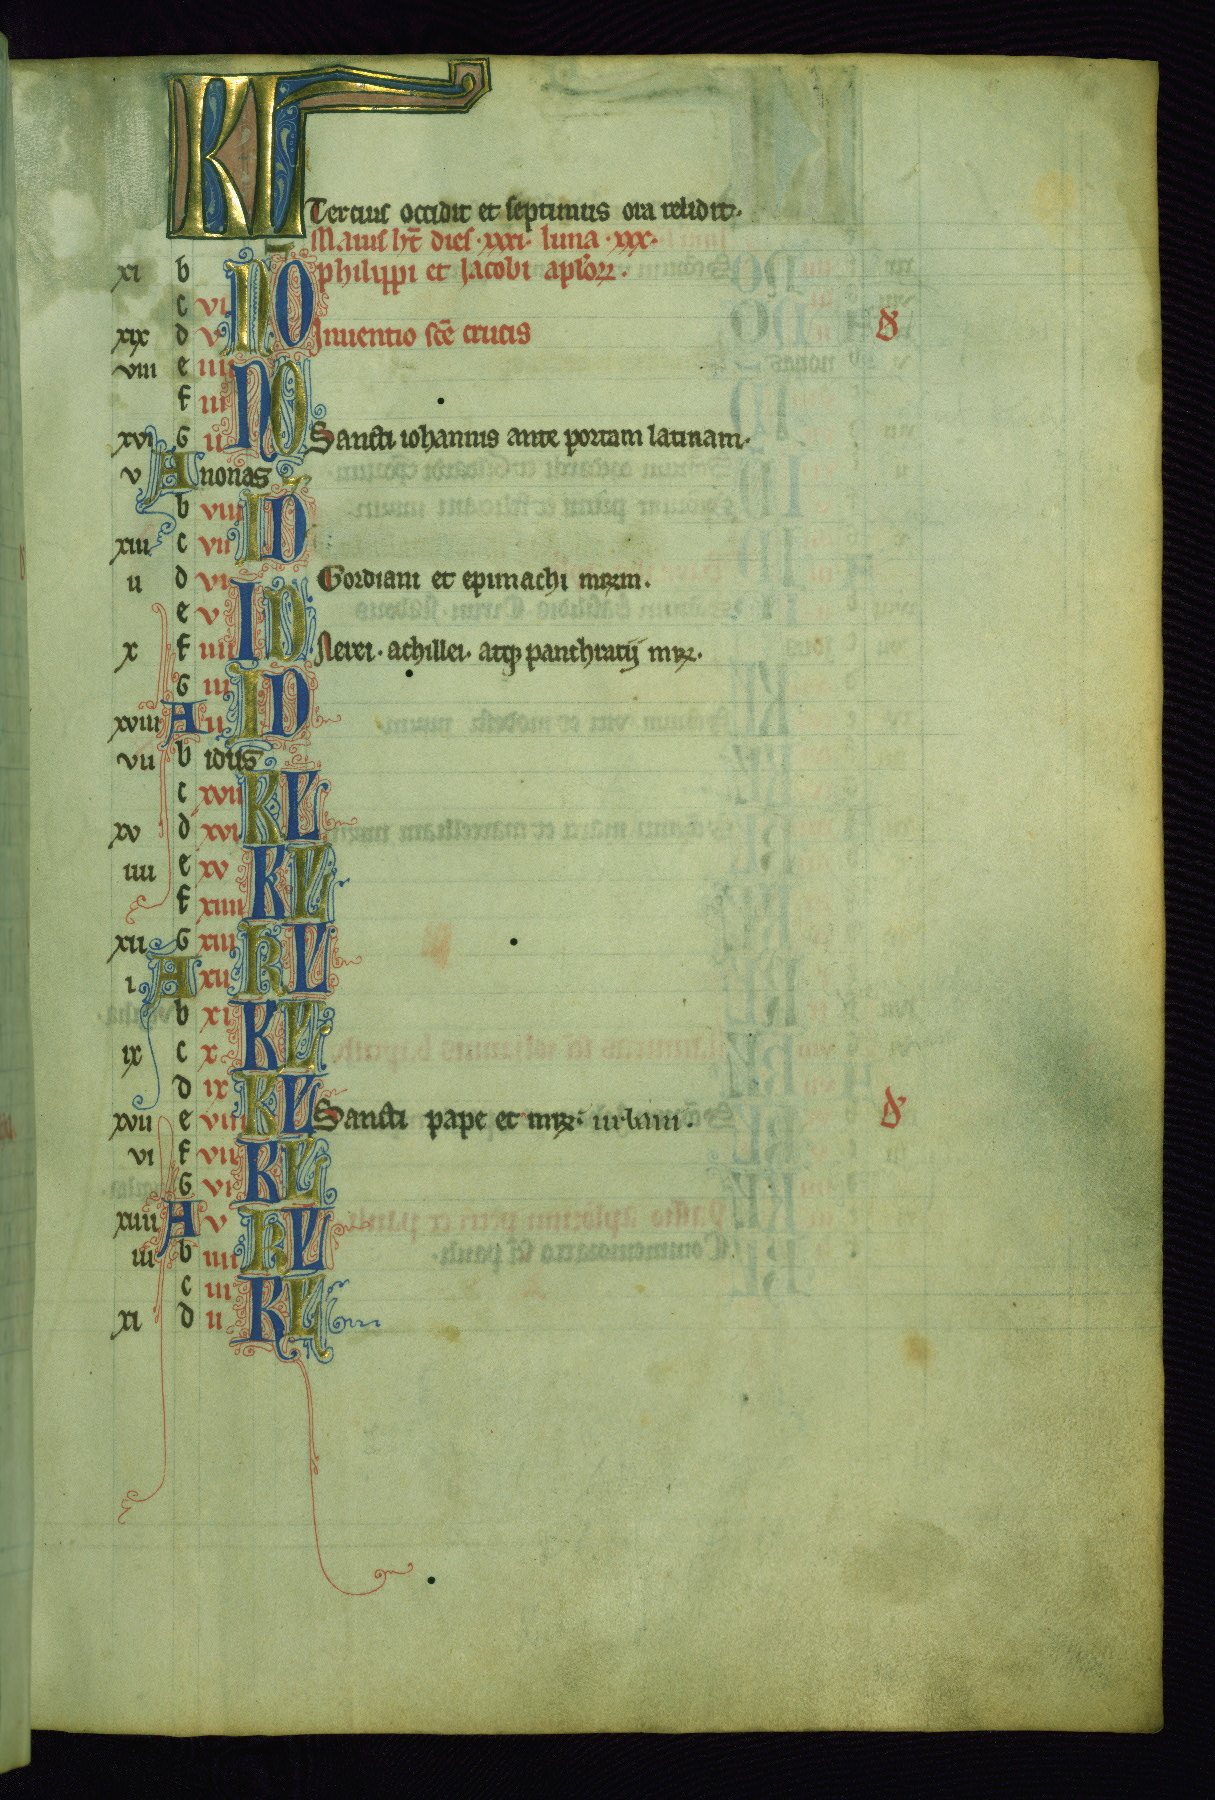 KL
Tercius occidit et septimus ora relidit.
Maius ht dies .xxxi. luna .xxx.
xi b philippi et Jacobi aplorz.
c vi NO
xix d v Inuentio sce crucis
viii e iiii
f iii NO
xvi G ii Sancti iohannis ante portam latinam.
v A nonas
b viii ID
xiii c vii
ii d vi Gordiani et epimachi mrm.
e v ID
x f iiii Nerei. achillei. atqz panchratij mrz.
G iii ID
xviii A ii
vii b idus
c xvii KL
xv d xvi
iiii e xv KL
f xiiii
xii G xiii KL
i. A xii
b xi KL
ix c x
d ix KL
xvii e viii Sancti pape et mrz. urbani.
vi f vii KL
G vi
xiiii A v KL
iii b iiii
c iii KL
xi d ii